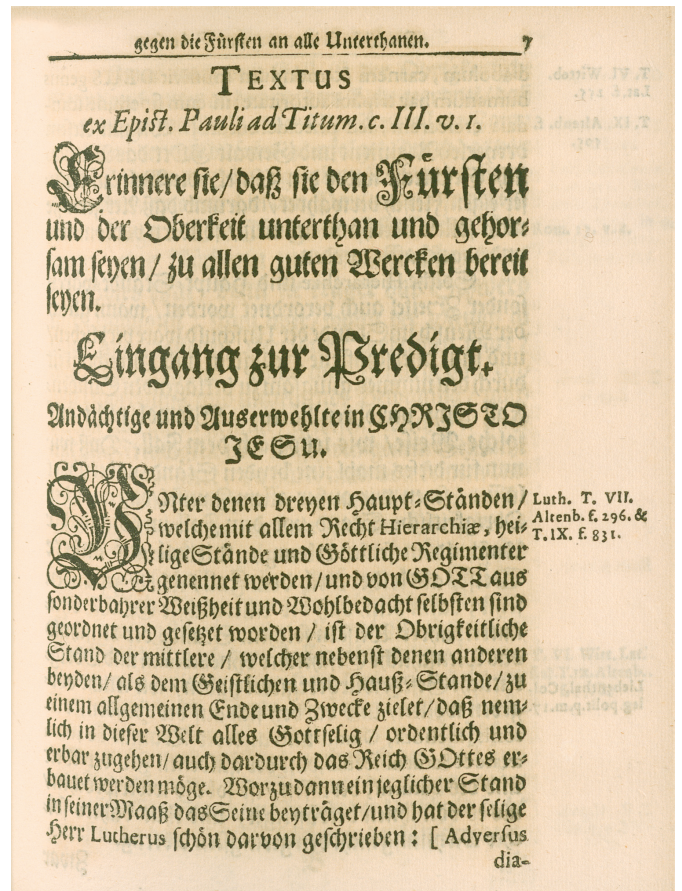 gegen die Fürsten an alle Unterthanen. 7
TEXTUS
ex Epist. Pauli ad Titum. c. III. v. 1.
Erinnere sie/ daß sie den Fürsten
und der Oberkeit unterthan und gehor⸗
sam seyen/ zu allen guten Wercken bereit
seyen.
Eingang zur Predigt.
Andächtige und Auserwehlte in CHRISTO
JESU.
UNter denen dreyen Haupt⸗Ständen/
welche mit allem Recht Hierarchiæ, hei⸗
lige Stände und Göttliche Regimenter
genennet werden/ und von GOTT aus
sonderbahrer Weißheit und Wohlbedacht selbsten sind
geordnet und gesetzet worden/ ist der Obrigkeitliche
Stand der mittlere/ welcher nebenst denen anderen
beyden/ als dem Geistlichen und Hauß⸗Stande/ zu
einem allgemeinen Ende und Zwecke zielet/ daß nem⸗
lich in dieser Welt alles Gottselig/ ordentlich und
erbar zugehen/ auch dardurch das Reich GOttes er⸗
bauet werden möge. Worzu dann ein jeglicher Stand
in seiner Maaß das Seine beyträget/ und hat der selige
Herr Lutherus schön darvon geschrieben: [Adversus
dia-
Luth. T. VII.
Altenb. f. 296. &
T. IX. f. 831.